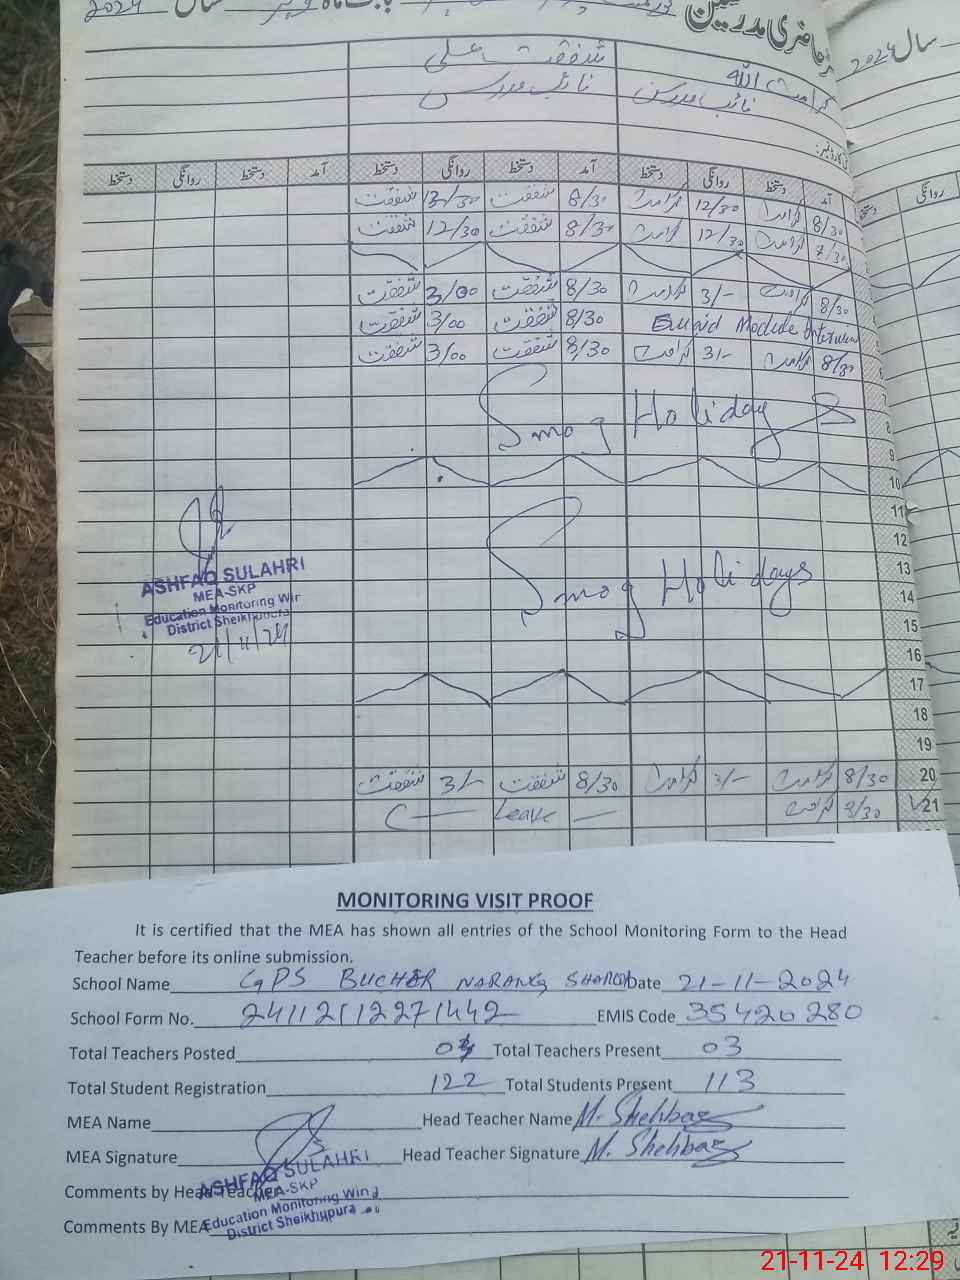 حاضری مدرسین
سال 2024
سال 2024
شفقت علی
کرامت اللہ
نائب مدرس
نائب مدرس
آمد دستخط روانگی دستخط آمد دستخط روانگی دستخط آمد دستخط روانگی دستخط
8/30 کرامت 12/30 کرامت 8/30 شفقت 12/30 شفقت
8/30 کرامت 12/30 کرامت 8/30 شفقت 12/30 شفقت
8/30 کرامت 3/- کرامت 8/30 شفقت 3/00 شفقت
Module 8/30 شفقت 3/00 شفقت
8/30 کرامت 3/- کرامت 8/30 شفقت 3/00 شفقت
6
7
Smog Holidays
8
9
10
11
12
Smog Holidays
13
14
15
16
17
18
19
20 8/30 کرامت 3/- کرامت 8/30 شفقت 3/- شفقت
21 8/30 کرامت Leave
ASHFAQ SULAHRI
MEA-SKP
Education Monitoring Win
District Sheikhupura
21/11/24
MONITORING VISIT PROOF
It is certified that the MEA has shown all entries of the School Monitoring Form to the Head
Teacher before its online submission.
School Name GPS BUCHER NARANG Date 21-11-2024
School Form No. EMIS Code 35420280
Total Teachers Posted Total Teachers Present 03
Total Student Registration 122 Total Students Present 113
MEA Name Head Teacher Name M. Shehbaz
MEA Signature Head Teacher Signature M. Shehbaz
ASHFAQ SULAHRI
Comments by Head Teacher
MEA-SKP
Education Monitoring Wing
Comments By MEA
District Sheikhupura
21-11-24 12:29